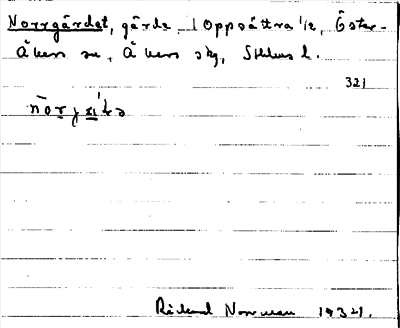 Norrgärdet, gärde, i Oppsättra 1/2, Öster-
Åkers sn, Åkers skg, Sthlms l.
321
Rickard Norrman 1934.